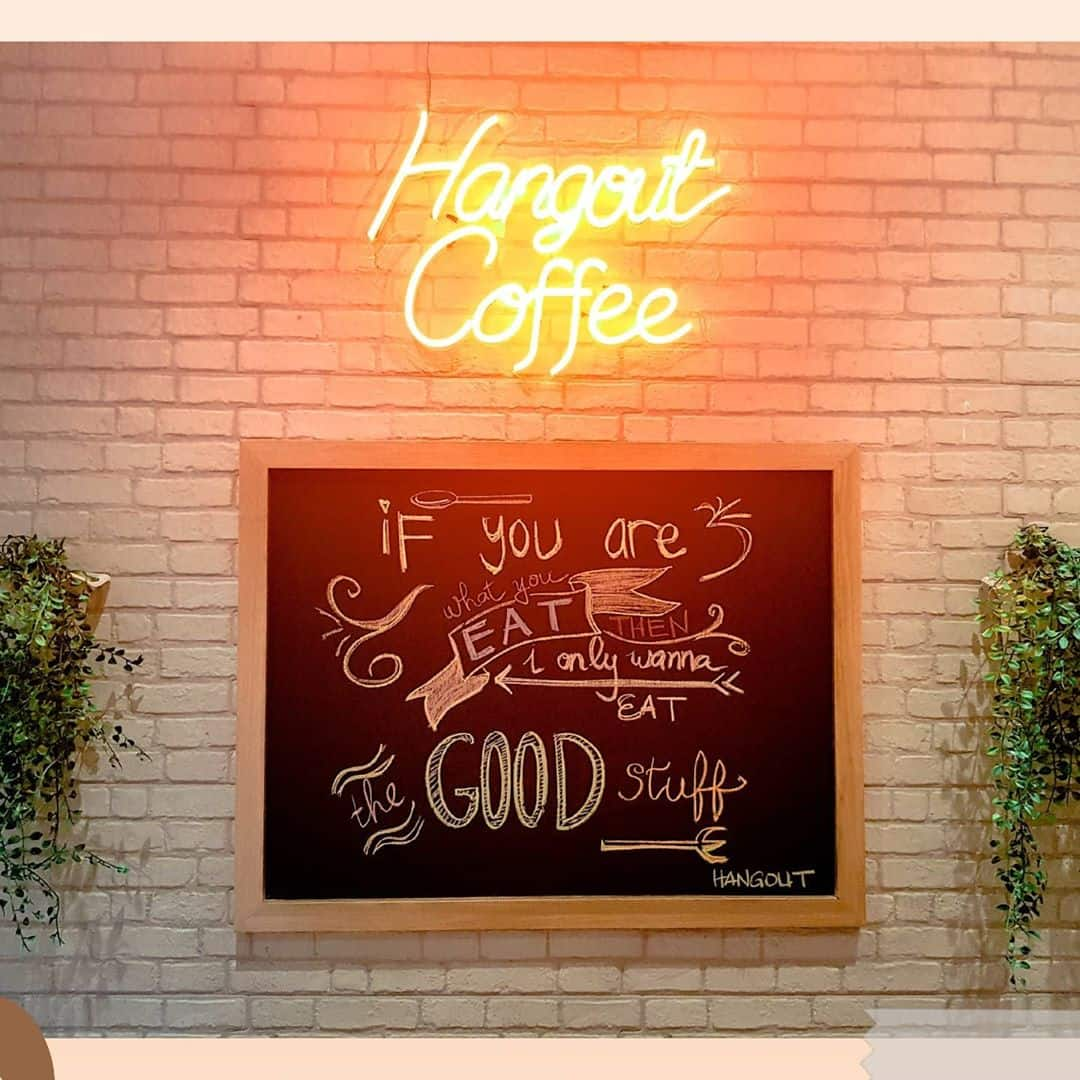 Hangout
Coffee
iF you are
what you
EAT THEN
i only wanna
EAT
the GOOD stuff
HANGOUT